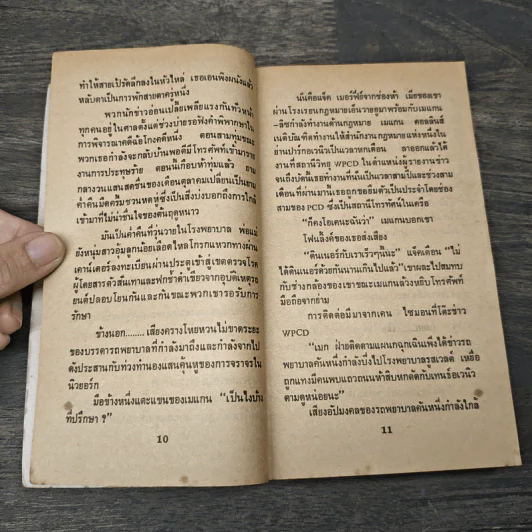 ทำให้สายเปรัดลึกลงในหัวไหล่ เธอเอนพิงผนังแล้ว
หลับตาเป็นการพักสายตาครู่หนึ่ง
พวกนักข่าวอ่อนเปลี้ยเพลียแรงกันทั่วหน้า
ทุกคนอยู่ในศาลตั้งแต่ช่วงบ่ายรอฟังคำพิพากษาใน
การพิจารณาคดีฉ้อโกงคดีหนึ่ง ตอนสามทุ่มขณะ
พวกเธอกำลังจะกลับบ้านพอดีมีโทรศัพท์เข้ามาราย
งานการประทุษร้าย ตอนนี้เกือบห้าทุ่มแล้ว ยาม
กลางวันแสนสดชื่นของเดือนตุลาคมเปลี่ยนเป็นยาม
ค่ำคืนมืดครึ้มชวนหดหู่ซึ่งเป็นสิ่งบ่งบอกถึงการใกล้
เข้ามาที่ไม่น่าชื่นใจของต้นฤดูหนาว
มันเป็นค่ำคืนที่วุ่นวายในโรงพยาบาล พ่อแม่
ยังหนุ่มสาวอุ้มลูกน้อยเลือดไหลโกรกแหวกทางผ่าน
เคาน์เตอร์ลงทะเบียนผ่านประตูเข้าสู่เขตตรวจโรค
ผู้โดยสารตัวสั่นเทาและฟกช้ำดำเขียวจากอุบัติเหตุรถ
ยนต์ปลอบโยนกันและกันขณะพวกเขารอรับการ
รักษา
ข้างนอก........เสียงครางโหยหวนไม่ขาดระยะ
ของบรรดารถพยาบาลที่กำลังมาถึงและกำลังจากไป
ดังประสานกับท่วงทำนองแสนคุ้นหูของการจราจรใน
นิวยอร์ก
มือข้างหนึ่งแตะแขนของเมแกน “เป็นไงบ้าง
ที่ปรึกษา ?”
10
นั่นคือแจ็ค เมอร์ฟี่ย์จากช่องห้า เมียของเขา
ผ่านโรงเรียนกฎหมายเอ็นวายยูมาพร้อมกับเมแกน
-ลิซกำลังทำงานด้านกฎหมาย เมแกน คอลลินส์
เนติบัณฑิตทำงานให้สำนักงานกฎหมายแห่งหนึ่งใน
ย่านปาร์กอเวนิวเป็นเวลาหกเดือน ลาออกแล้วได้
งานที่สถานีวิทยุ WPCD ในตำแหน่งผู้รายงานข่าว
จนถึงบัดนี้เธอทำงานที่นั่นเป็นเวลาสามปีและช่วงสาม
เดือนที่ผ่านมานี้เธอถูกขอยืมตัวเป็นประจำโดยช่อง
สามของ PCD ซึ่งเป็นสถานีโทรทัศน์ในเครือ
“ก็คงโอเคนะฉันว่า” เมแกนบอกเขา
โฟนลิ้งค์ของเธอส่งเสียง
“ดินเนอร์กับเราเร็วๆนี้นะ” แจ็คเตือน “ไม่
ได้ดินเนอร์ด้วยกันนานเกินไปแล้ว” เขาผละไปสมทบ
กับช่างกล้องของเขาขณะเมแกนล้วงหยิบโทรศัพท์
มือถือจากย่าม
การติดต่อมีมาจากเคน ไซมอนที่โต๊ะข่าว
WPCD
“เมก ฝ่ายติดตามแผนกฉุกเฉินแพ้งได้ข่าวรถ
พยาบาลคันหนึ่งกำลังบึ่งไปโรงพยาบาลรูสเวลต์ เหยื่อ
ถูกแทงมีคนพบแถวถนนห้าสิบหกตัดกับเทนธ์อเวนิว
ตามดูหน่อยนะ”
เสียงอัปมงคลของรถพยาบาลคันหนึ่งกำลังใกล้
11